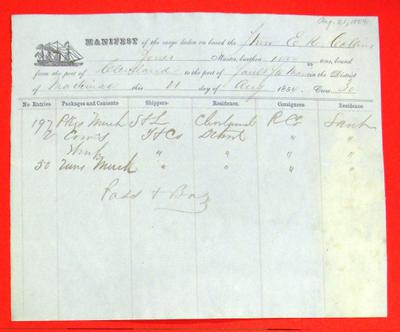 Aug. 21, 1854
MANIFEST of the cargo taken on board the Prop E. K. Collins
Jones Master, burthen tons, bound
from the port of Cleveland to the port of Sault Ste Marie in the District
of Mackinac this 21 day of Aug 1854. Crew 30
No. Entries Packages and Contents Shippers. Residence. Consignees Residence
197 Pkgs Merch S & L Cleveland P. Co Sault
2 Cows T & Co Detroit " "
" " " "
50 Tuns Merch " " " "
Pass & Bag